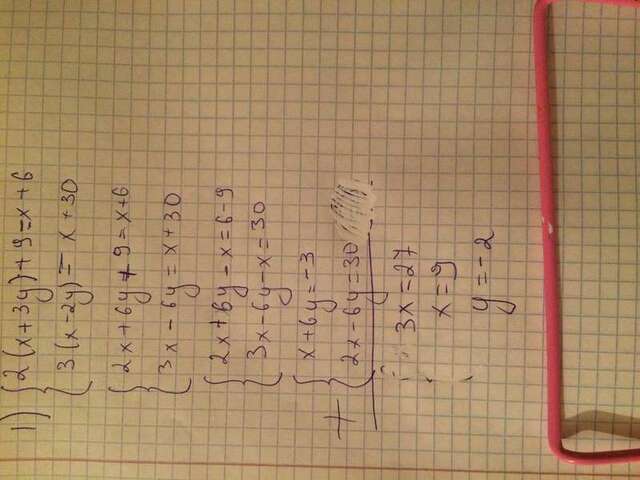 1) { 2(x+3y)+9=x+6
3(x-2y)= x+30
{ 2x+6y+9=x+6
3x-6y=x+30
{ 2x+6y-x=6-9
3x-6y-x=30
+ { x+6y=-3
2x-6y=30
3x=27
x=9
y=-2